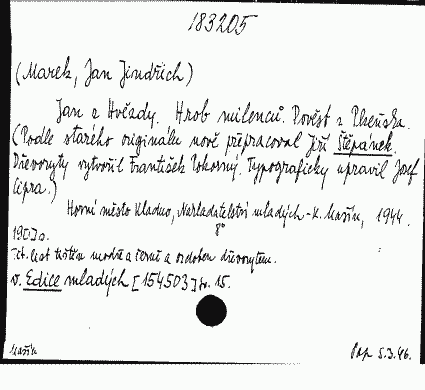 183205
(Marek, Jan Jindřich)
Jan z Hvězdy. Hrob milenců. Pověst z Plzeňska.
(Podle starého originálu nově přepracoval Jiří Štěpánek.
Dřevoryty vytvořil František Pokorný. Typograficky upravil Josef
Cipra.)
Horní město Kladno, Nakladatelství mladých - K. Mašín, 1944.
8°
19
Tit. list tištěn modře a černě a ozdoben dřevorytem.
v. Edice mladých [154503] sv. 15.
Mašín
Pap 5.3.46.